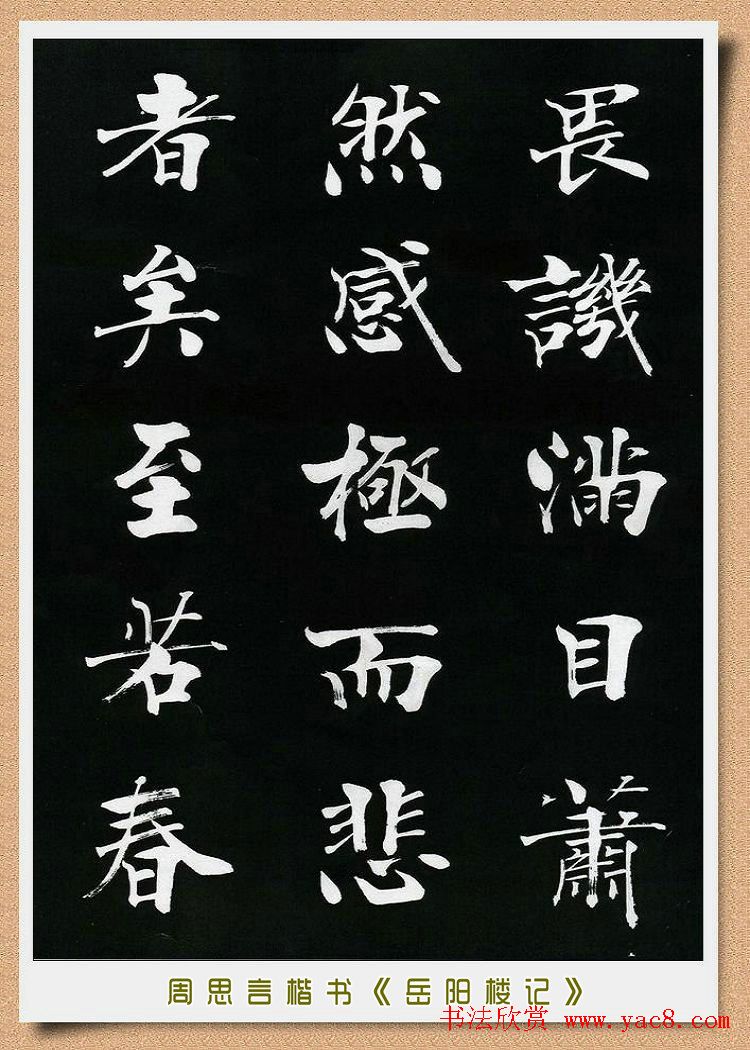 畏譏滿目蕭
然感極而悲
者矣至若春
周思言楷书《岳阳楼记》
书法欣赏 www.yac8.com